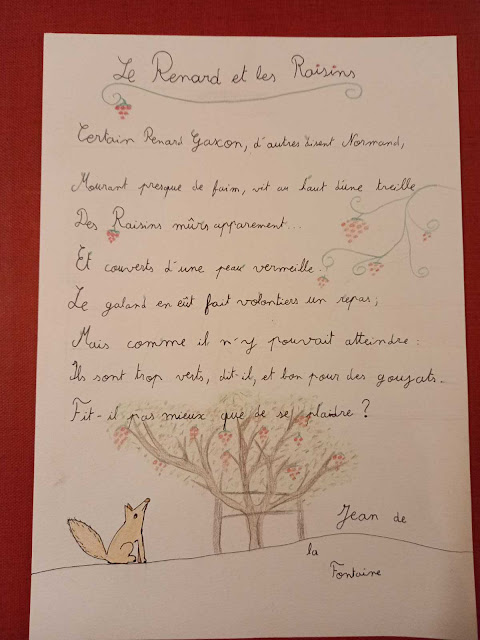 Le Renard et les Raisins
Certain Renard Gascon, d'autres disent Normand,
Mourant presque de faim, vit au haut d'une treille
Des Raisins mûrs apparement...
Et couverts d'une peau vermeille.
Le galand en eût fait volontiers un repas;
Mais comme il n'y pouvait atteindre:
Ils sont trop verts, dit-il, et bon pour des goujats.
Fit-il pas mieux que de se plaidre?
Jean de
la
Fontaine